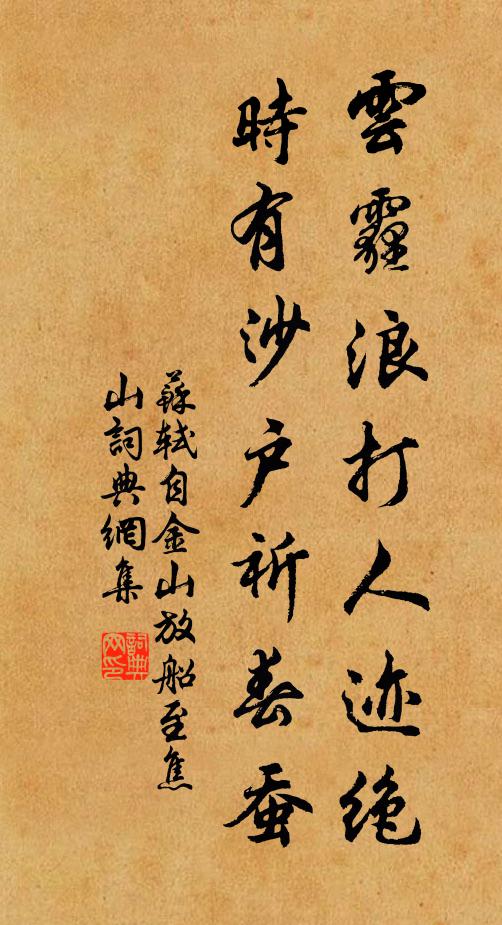 雲霾浪打人迹絶
時有沙户祈春蚕
蘇軾自金山放船至焦
山詞典網集
詞典
网印